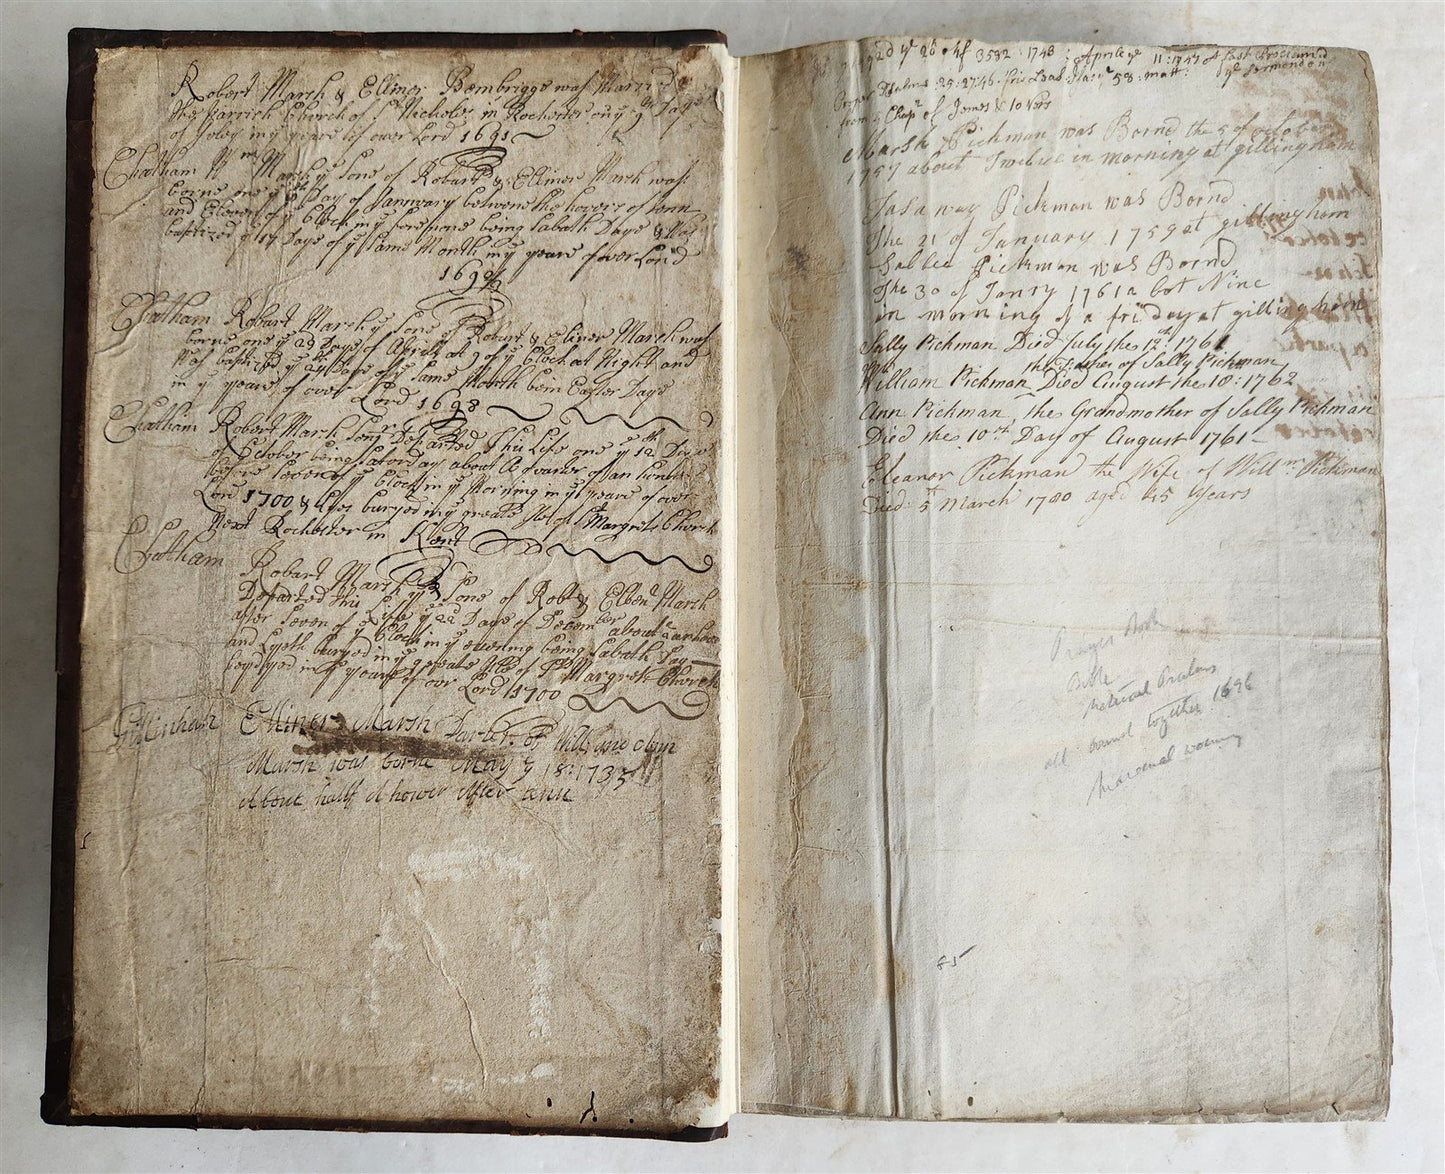 Robert Marsh & Ellinor Bambrigge was Married
the Parrich Church of St Nicholes in Rochester on ye 9th Daye
of in ye yeare of over Lord 1691
Chatham Wm Marsh ye Sone of Robart & Ellinor Marsh was
borne one ye Day of Jannuary betwene the howers of tenn
and Eleven of ye Clock in ye forenone being Sabath Daye & was
baptized ye 17 Daye of ye same Month in ye yeare of over Lord
169
Chatham Robart Marsh ye Sone of Robart & Eliner Marsh was
borne one ye 23 Daye of Aprill at 9 of ye Clock at Night and
Was baptized ye 24 Daye of ye same Month bein Easter Daye
in ye yeare of over Lord 1698
Chatham Robart Marsh Senr Departed This Life one ye 12th Daye
of October being Saterday about A quarter of an hower
before seven of ye Clock in ye Morning in ye yeare of over
Lord 1700 & lyes buryed in ye greate Iles of St Margrets Church
Next Rochester in Kent
Chatham Robart Marsh ye Sone of Robt & Marsh
Departed this Life ye 22 Daye of December about 2 an hower
after seven of ye Clock in ye evening being Sabath Day
and Lyeth buryed in ye greate Iles of St Margrets Church
in ye yeare of over Lord 1700
Ellinor Marsh Darter of Will and
Marsh was borne May ye 18: 1735
About half A hower After tenn
3592 1748 : Aprile ye 11: 1747
25: 2746
from 5 Chapr of James & 10 Vers
Marsh Pickman was Bornd the 5 of october
1757 about Twelve in morning at gillingham
Pickman was Bornd
The 21 of January 1759 at gillingham
Sallee Pickman was Bornd
The 30 of Janry 1761 a bot Nine
in morning of a friday at gillingham
Sally Pickman Died July the 12th 1761
the Father of Sally Pickman
William Pickman Died August the 18: 1762
Ann Pickman the Grandmother of Sally Pickman
Died the 10th Day of August 1761
Eleanor Pickman the Wife of Willm Pickman
Died 5th March 1780 aged 45 Years
Prayer Book
Bible
Metrical Psalms
all bound together 1696
85